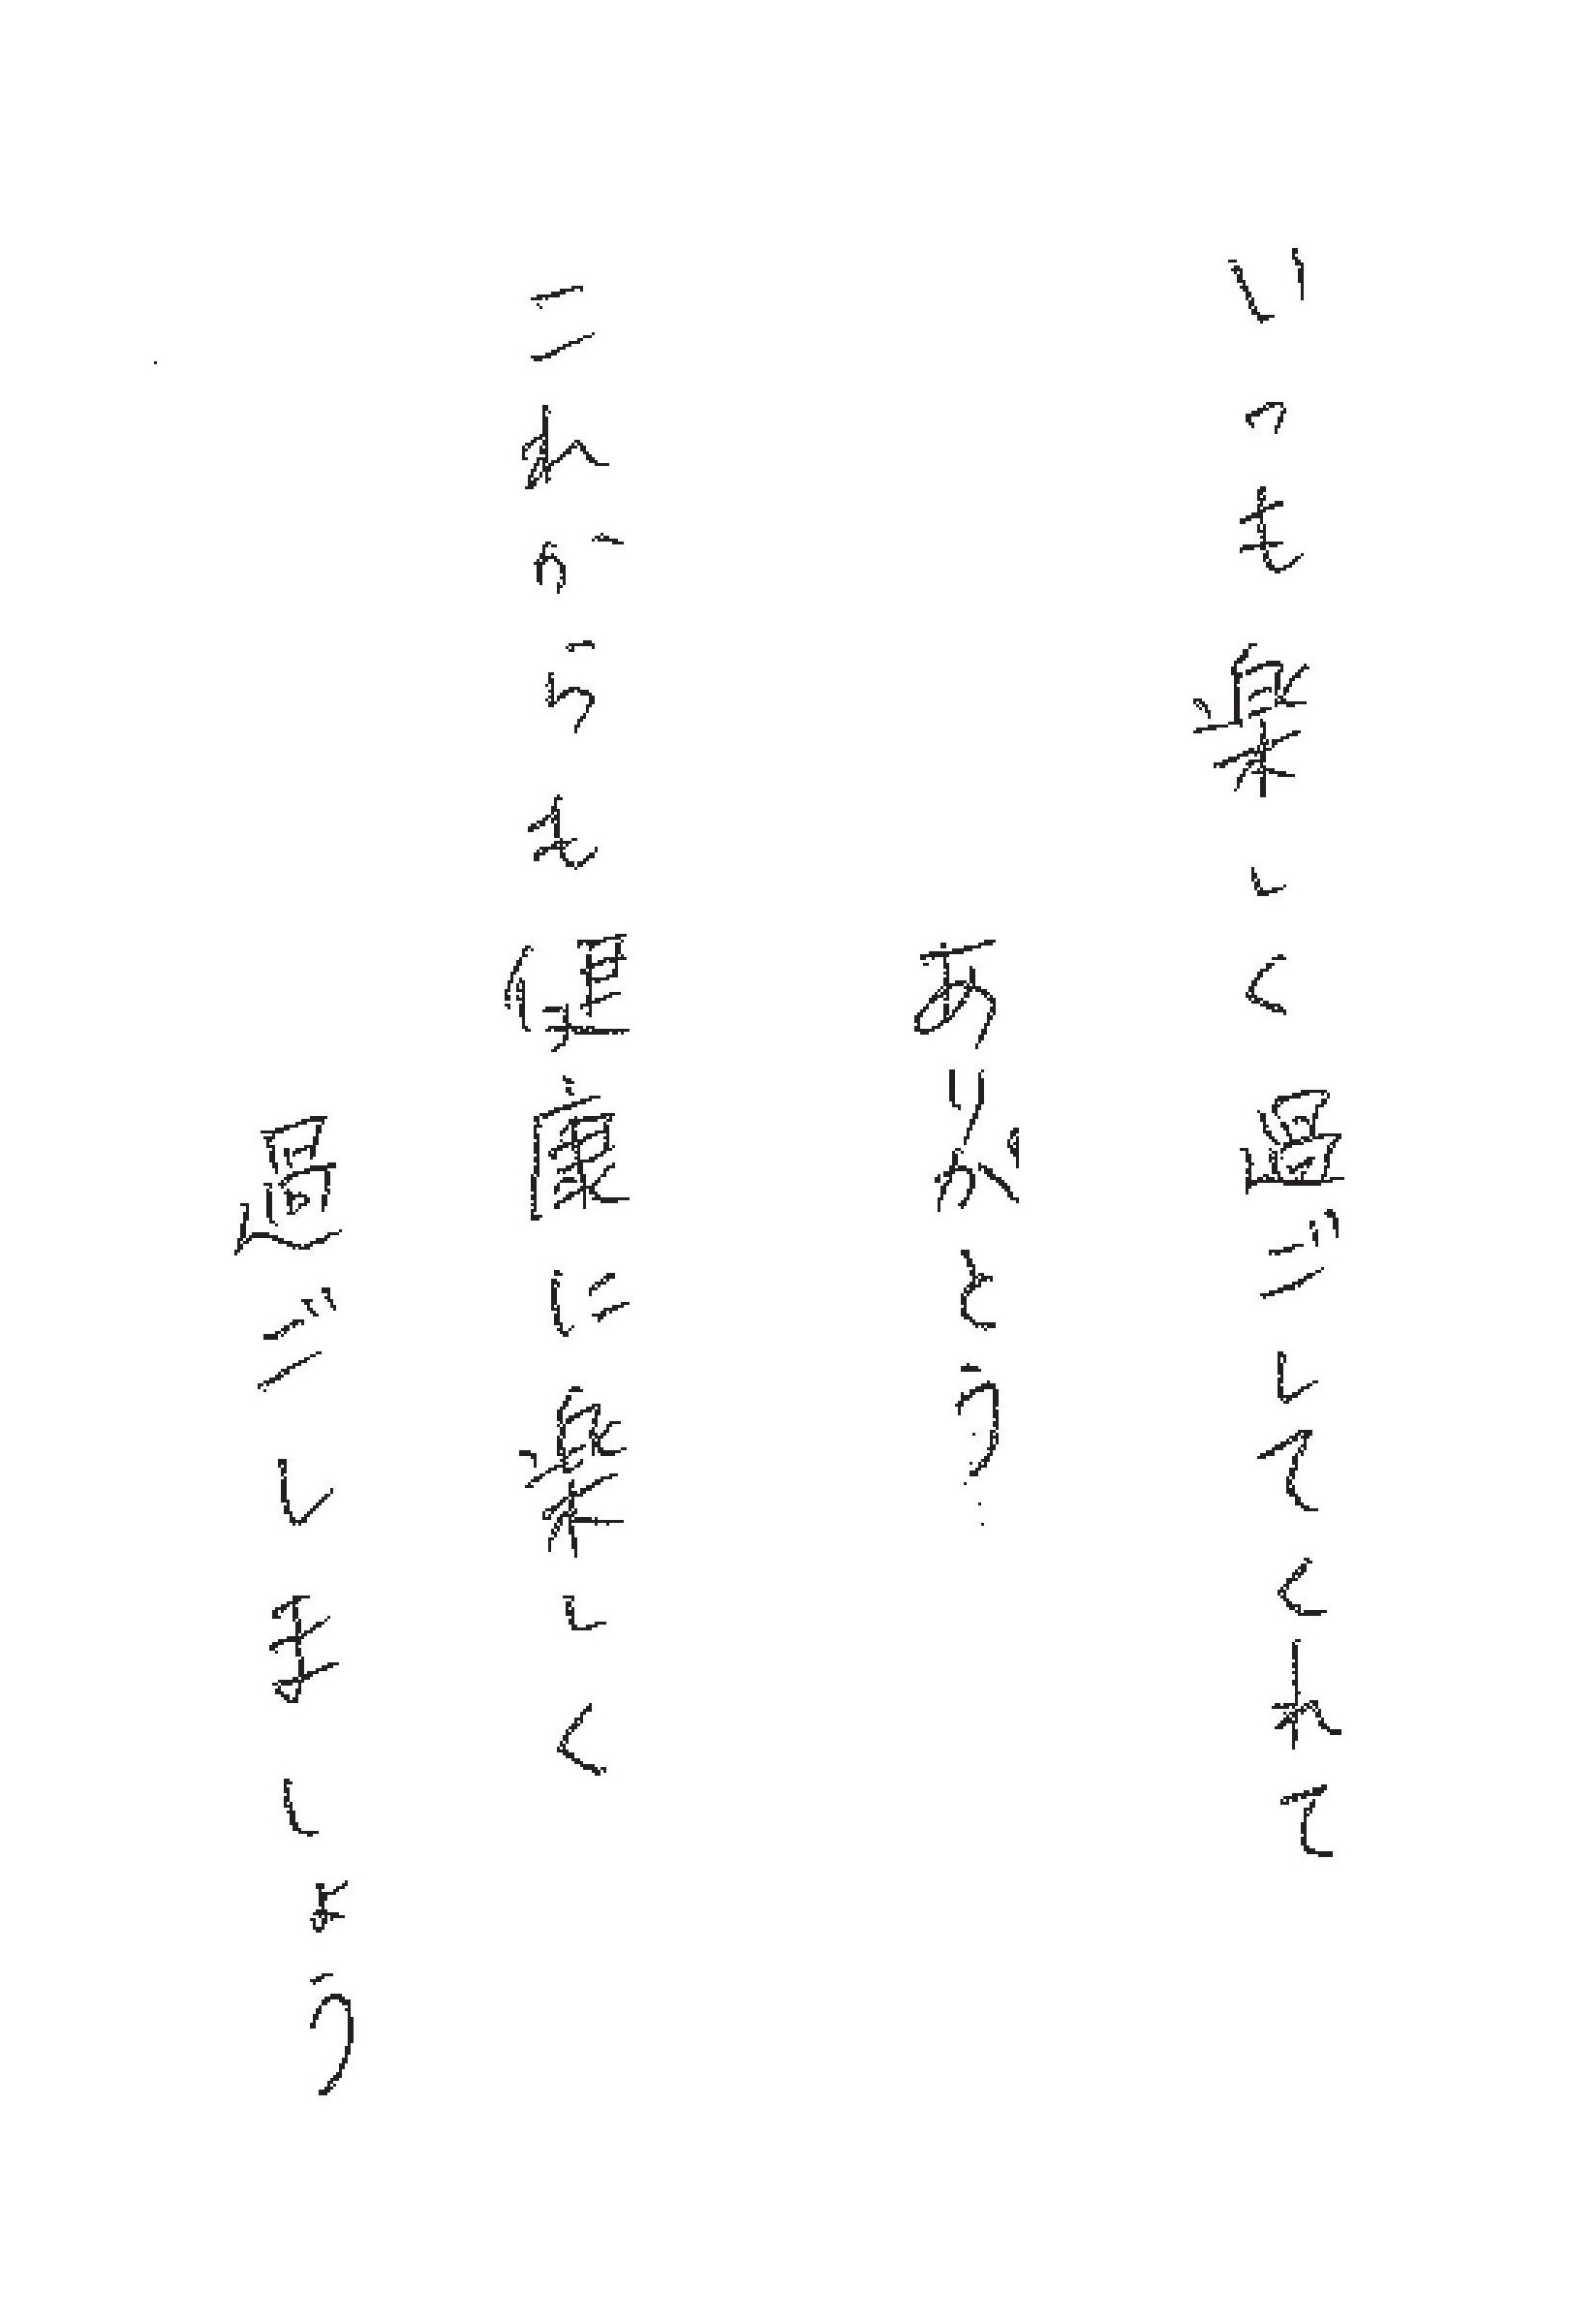 いつも楽しく過ごしてくれて
ありがとう
これからも健康に楽しく
過ごしましょう